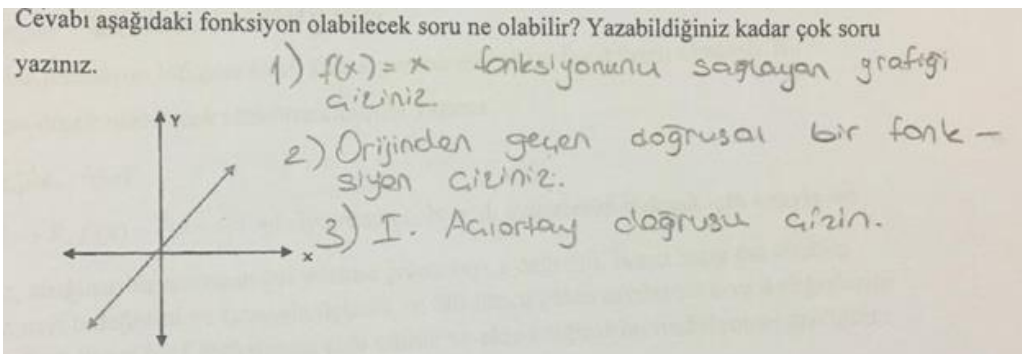 Cevabı aşağıdaki fonksiyon olabilecek soru ne olabilir? Yazabildiğiniz kadar çok soru
yazınız.
1) f(x) = x fonksiyonunu sağlayan grafiği
çiziniz.
2) Orijinden geçen doğrusal bir fonk-
siyon çiziniz.
3) I. Açıortay doğrusu çizin.
Y
x